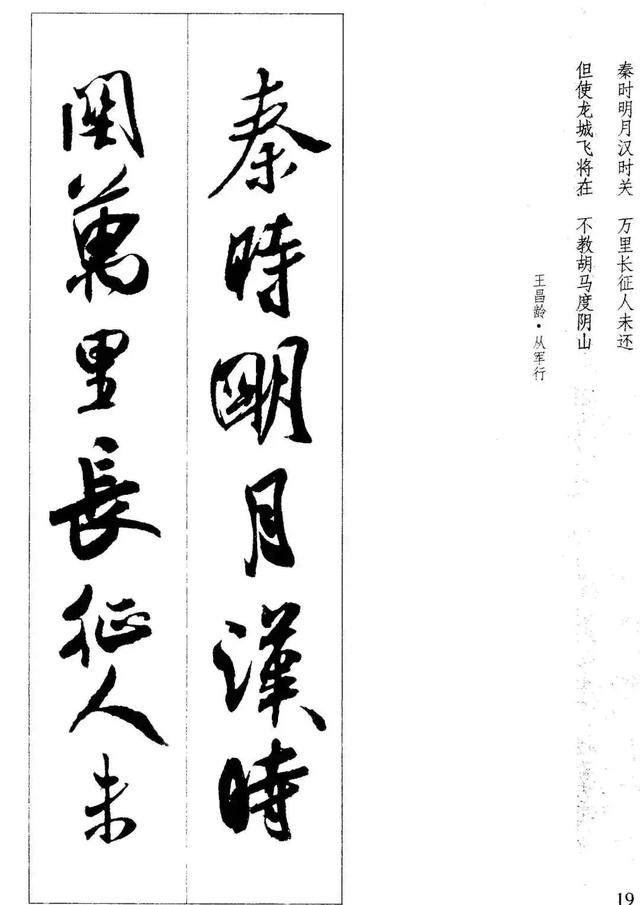 秦时明月汉时关 万里长征人未还
但使龙城飞将在 不教胡马度阴山
王昌龄·从军行
秦時明月漢時
關萬里長征人未
19